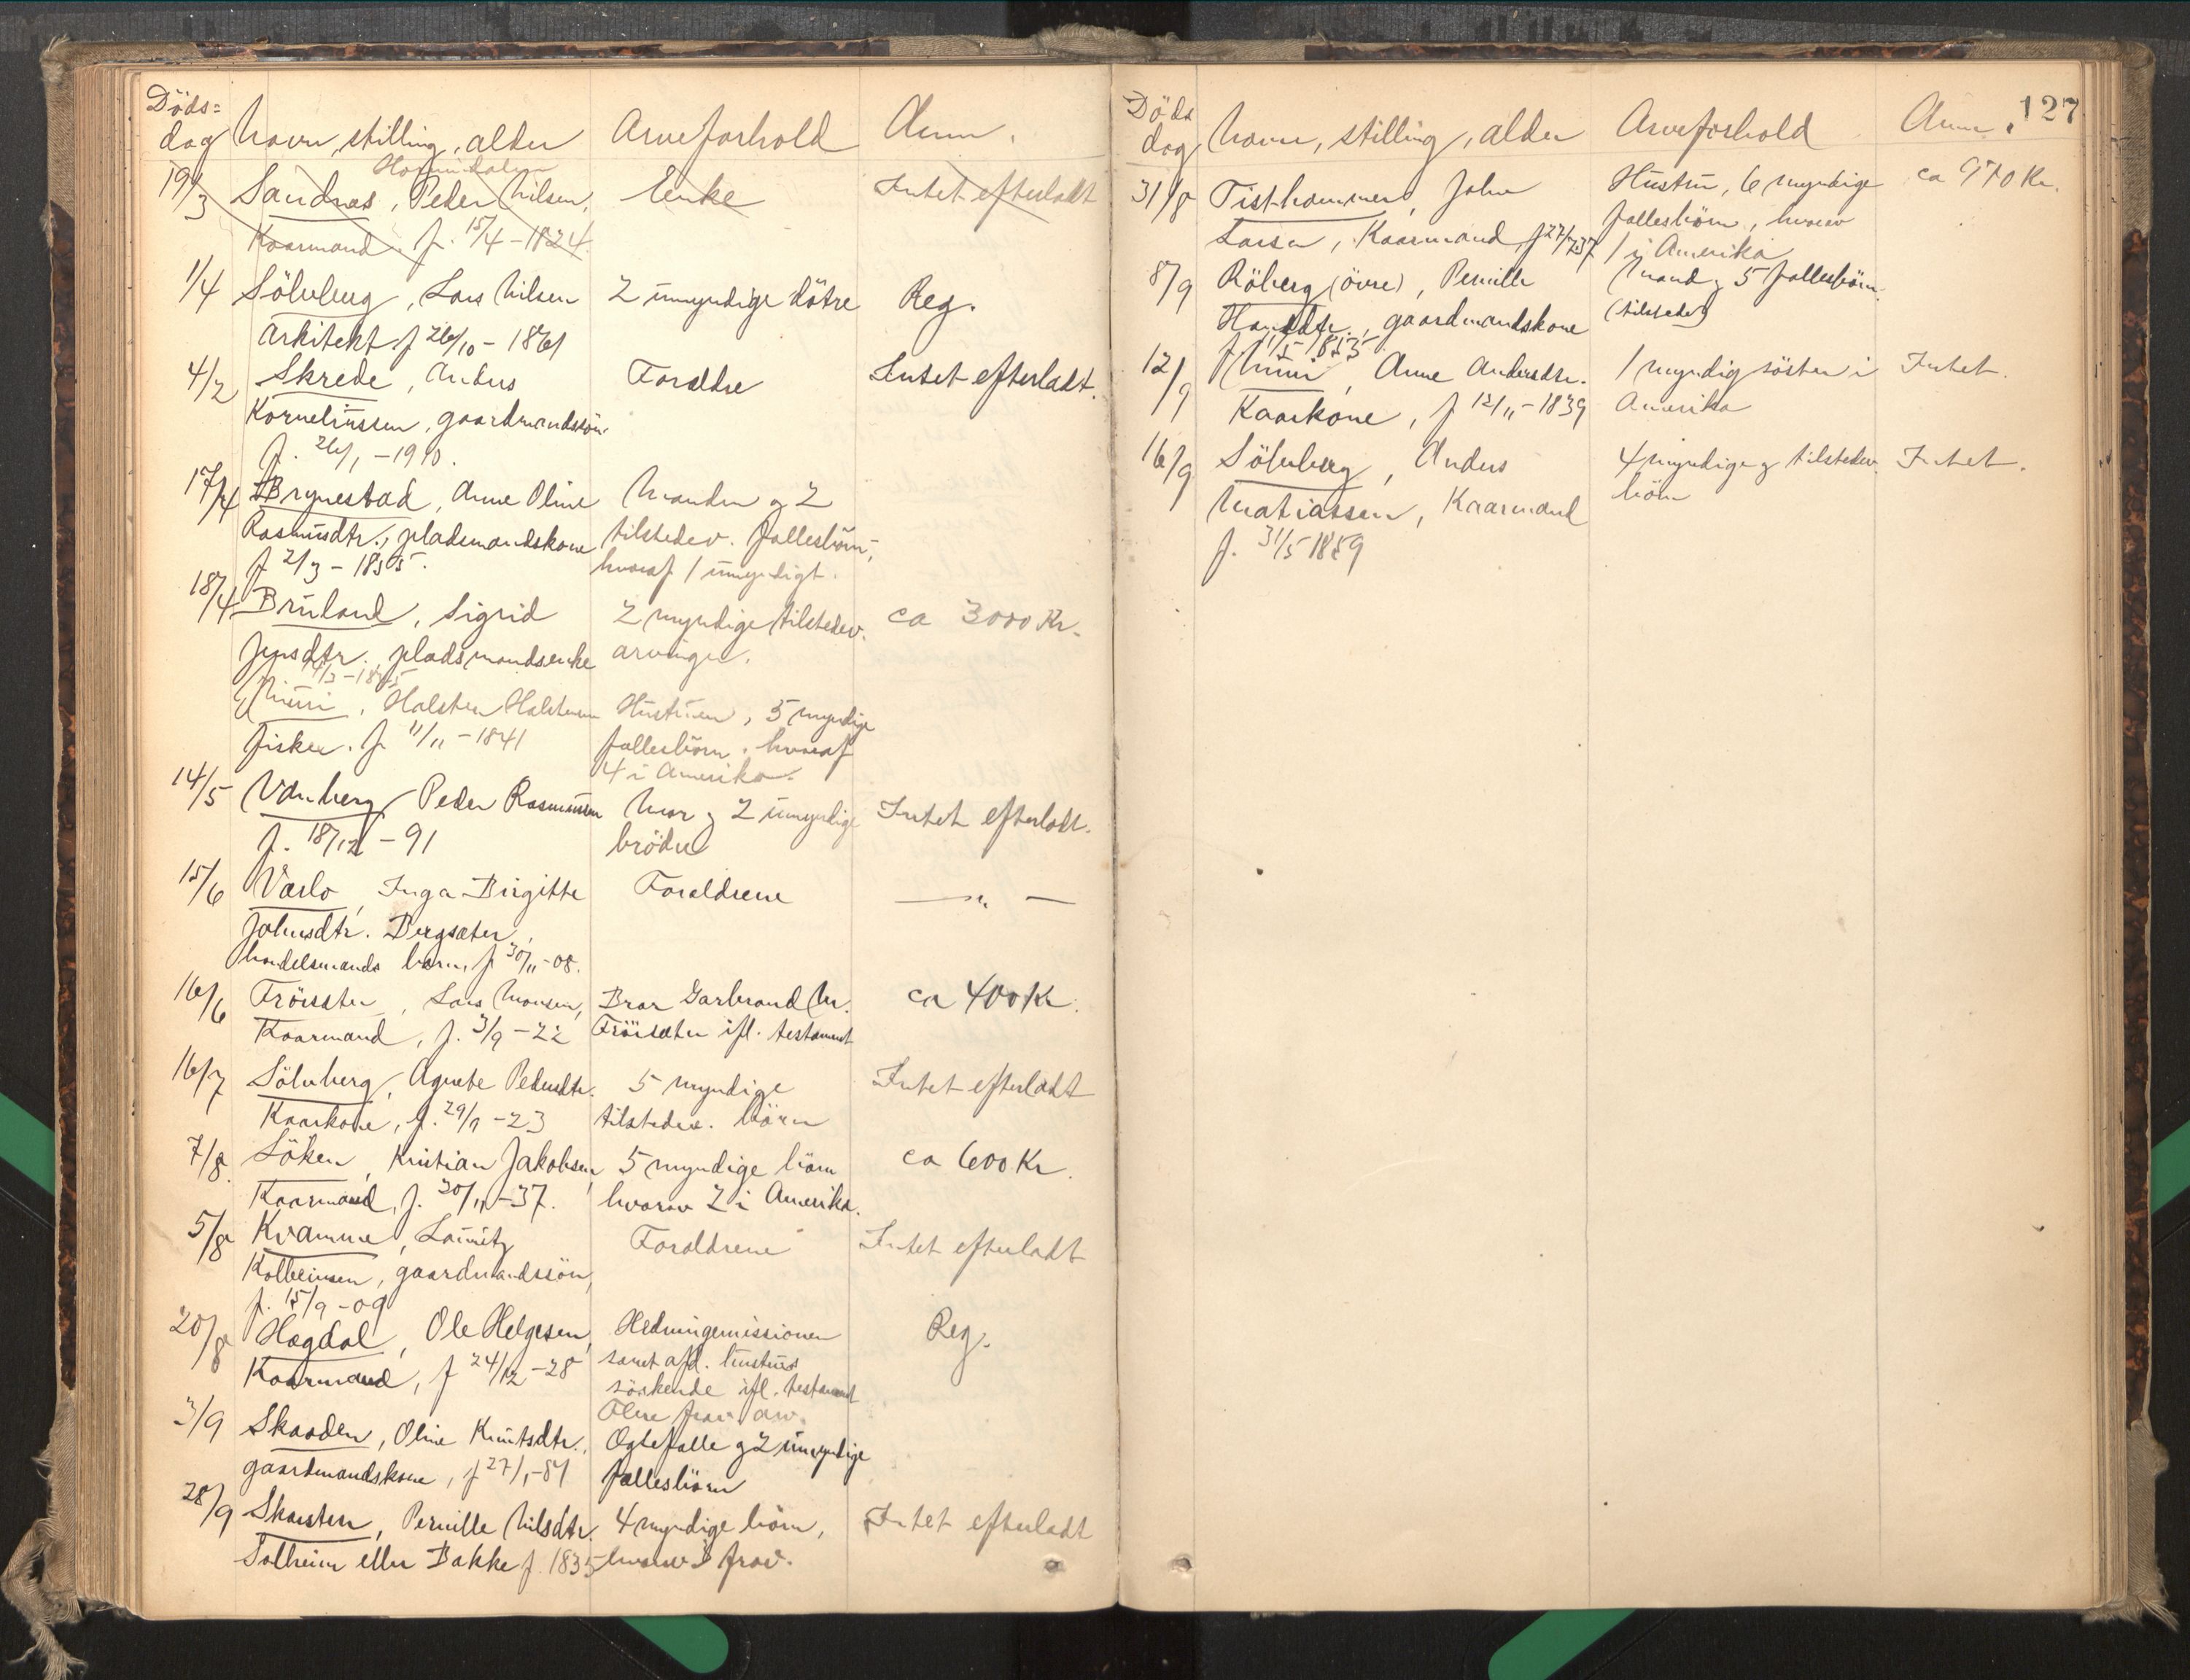 Döds=
dag Navn, stilling, alder Arveforhold Anm.
Hornindalen
19/3 Sandnes, Peder Nilsen, Enke Intet efterladt
Kaarmand. f. 15/4 - 1824.
1/4 Sölvberg, Lars Nilsen 2 umyndige dötre Reg.
arkitekt f 26/10 - 1861
4/2 Skrede, Anders Forældre Intet efterladt.
Korneliussen, gaardmandssön
f. 26/1 - 1910.
17/4 Brynestad, Anne Oline Manden og 2
Rasmusdtr., pladsmandskone tilstedev. fællesbörn,
f 2/3 - 1855. hvoraf 1 umyndigt.
18/4 Bruland, Sigrid 2 myndige tilstedev. ca 3000 Kr.
Jensdtr. pladsmandsenke arvinger.
Muri, Halsten Halstensen Hustruen, 5 myndige
fisker. f. 11/11 - 1841 fællesbörn, hvoraf
4 i Amerika.
14/5 Vanberg, Peder Rasmussen Mor og 2 umyndige Intet efterladt.
f. 18/12 - 91 brödre
15/6 Værlo, Inga Birgitte Forældrene — " —
Johnsdtr. Bergsæter,
handelsmands barn, f 30/11 - 08.
16/6 Fröisæter, Lars Monsen, Bror Garbrand M. ca 400 Kr.
Kaarmand, f. 3/9 - 22 Fröisæter ifl. testament
16/7 Sölvberg, Agnete Pedersdtr. 5 myndige Intet efterladt
Kaarkone, f. 29/9 - 23 tilstedev. börn
7/8. Söken, Kristian Jakobsen, 5 myndige börn ca 600 Kr.
Kaarmand, f. 20/11 - 37. hvorav 2 i Amerika.
5/8 Kvamme, Lauritz Forældrene Intet efterladt
Kolbeinsen, gaardmandssön,
f. 15/9 - 09
20/8 Hægdal, Ole Helgesen, Hedningemissionen Reg.
Kaarmand, f 24/12 - 28 samt afd. hustrus
söskende ifl. testament
3/9 Skaaden, Oline Knutsdtr., Ægtefælle og 2 umyndige
gaardmandskone, f 27/1 - 81 fællesbörn
28/9 Skarsten, Pernille Nilsdtr. 4 myndige börn, Intet efterladt
Solheim eller Bakke f. 1835 hvorav frav.
127
Döds
dag Navn, stilling, alder Arveforhold Anm.
31/8 Tisthammer, John Hustru, 6 myndige ca 970 Kr.
Larsen, Kaarmand, f 27/7 37 fællesbörn, hvorav
1 i Amerika
8/9 Röberg (övre), Pernille Mand og 5 fællesbörn.
Hansdtr., gaardmandskone (tilstedev)
12/9 Muri, Anne Andersdtr. 1 myndig söster i Intet.
Kaarkone, f 12/11 - 1839 Amerika
16/9 Sölvberg, Anders 4 myndige og tilstedev. Intet.
Matiassen, Kaarmand börn
f. 31/5 1859